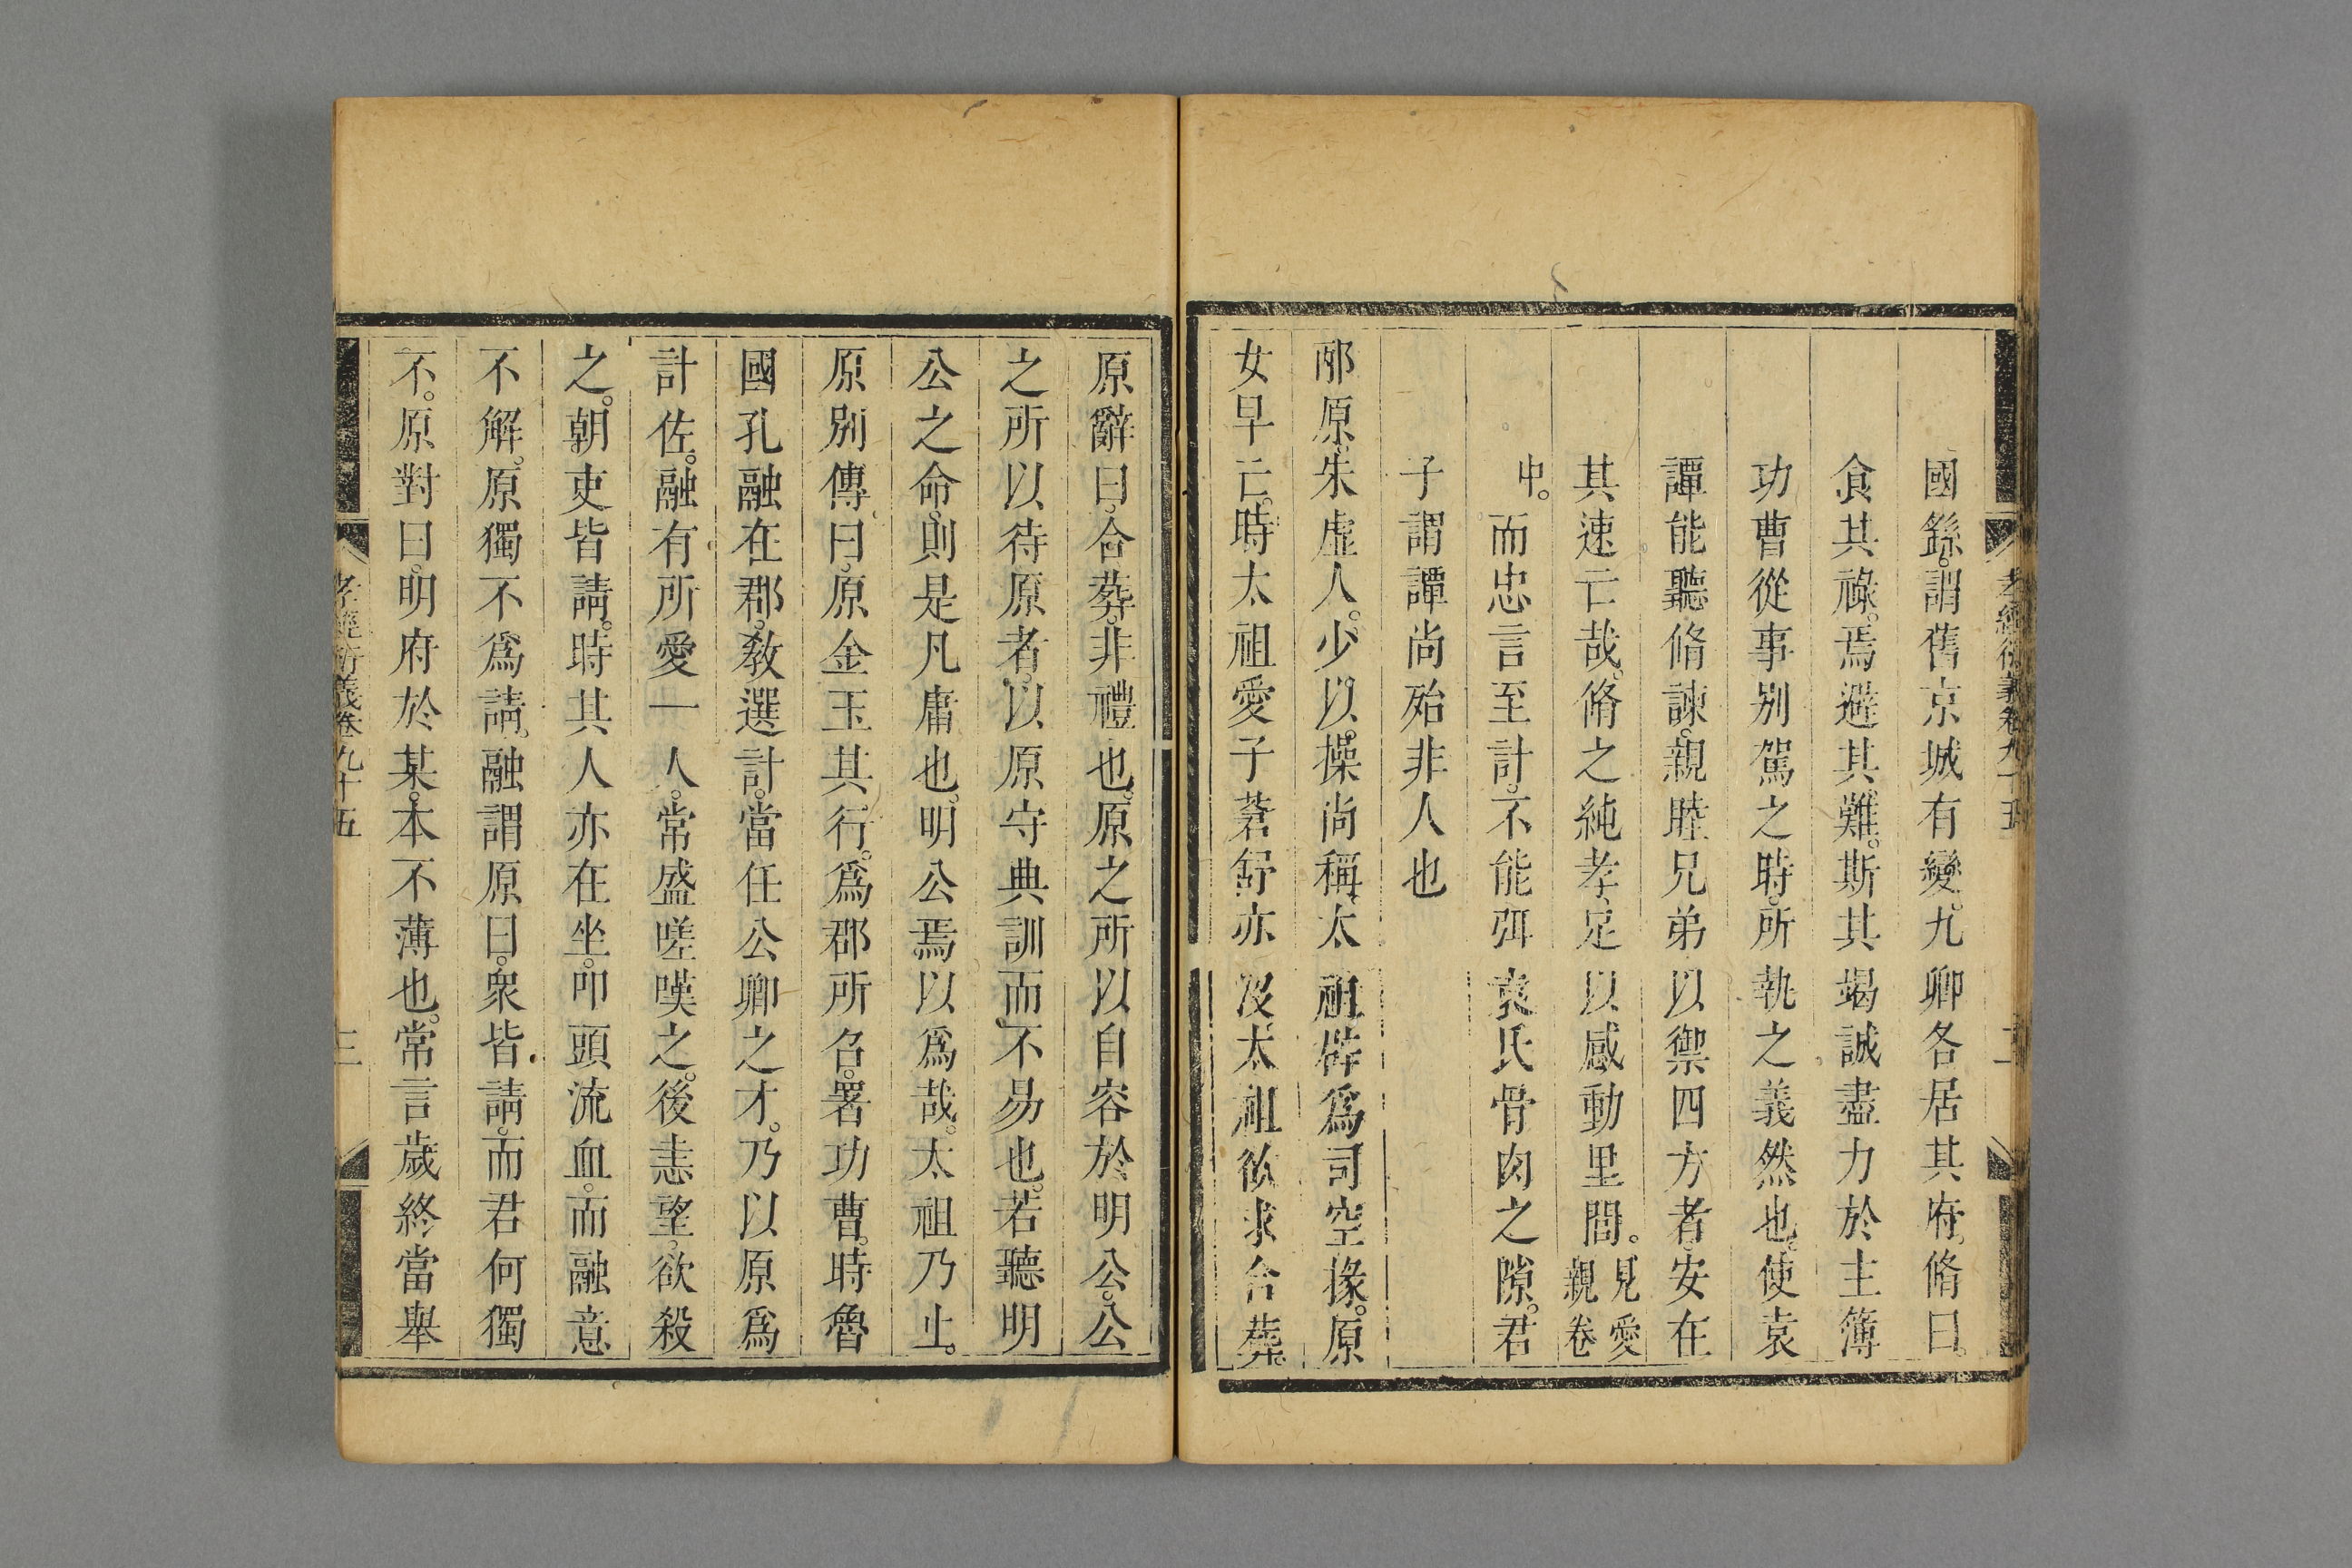 孝經衍義卷九十五 二
國繇。謂舊京城有變。九卿各居其府。脩曰。
食其祿。焉避其難。斯其竭誠盡力於主簿
功曹從事別駕之時。所執之義然也。使袁
譚能聽脩諫。親睦兄弟以禦四方者。安在
其速亡哉。脩之純孝足以感動里閭。見愛親卷
中。而忠言至計。不能弭袁氏骨肉之隙。君
子謂譚尚殆非人也
邴原。朱虛人。少。以。操尚稱。太祖辟爲司空掾。原
女早亡。時太祖愛子蒼舒亦沒。太祖欲求合葬。
原辭曰。合葬。非禮也。原之所以自容於明公。公
之所以待原者。以原守典訓而不易也。若聽明
公之命。則是凡庸也。明公焉以爲哉。太祖乃止。
原別傳曰。原金玉其行。爲郡所召。署功曹。時魯
國孔融在郡。敎選計。當任公卿之才。乃以原爲
計佐。融有所愛一人。常盛嗟嘆之。後恚望。欲殺
之。朝吏皆請。時其人亦在坐。叩頭流血。而融意
不解。原獨不爲請。融謂原曰。衆皆請。而君何獨
不。原對曰。明府於某。本不薄也。常言歲終當舉
孝經衍義卷九十五 三